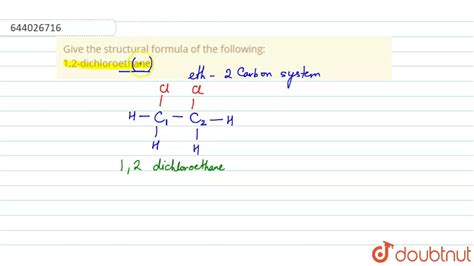 644026716
Give the structural formula of the following:
1,2-dichloroethane
eth - 2 Carbon system
Cl Cl
H - C1 - C2 - H
H H
1,2 dichloroethane
doubtnut